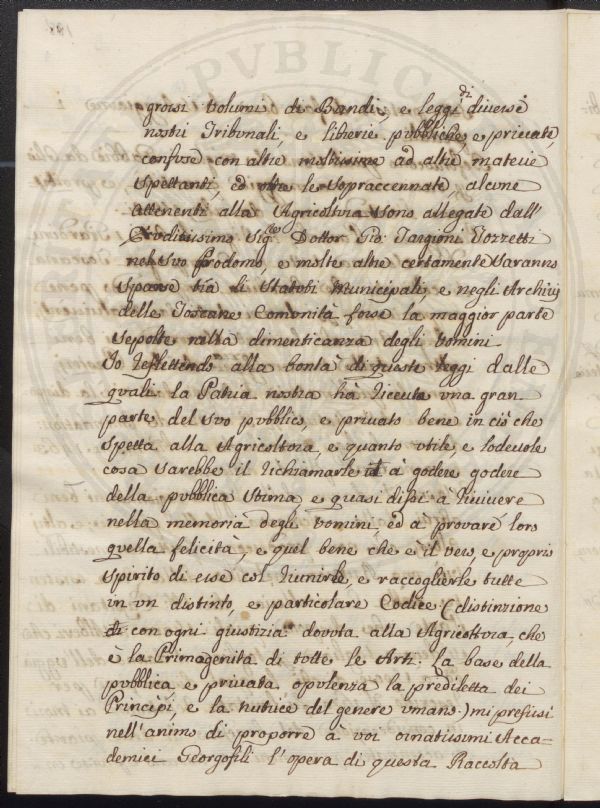 di
grossi volumi di Bandi, e leggi diversi
nostri Tribunali, e librerie pubbliche, e private,
confuse con altre moltissime ad altre materie
spettanti, ed oltre le sopraccennate, alcune
attenenti alla Agricoltura sono allegate dall'
Eruditissimo Sig.re Dottor Gio: Targioni Tozzetti
nel suo Prodomo, e molte altre certamente saranno
sparse tra li Statuti Municipali, e negli Archivj
delle Toscane Comunità forse la maggior parte
sepolte nella dimenticanza degli uomini.
Io reflettendo alla bontà di queste leggi dalle
quali la Patria nostra hà ricevuta una gran
parte del suo pubblico, e privato bene in ciò che
spetta alla Agricoltura, e quanto utile, e lodevole
cosa sarebbe il richiamarle à godere godere
della pubblica stima e quasi dissi à rivivere
nella memoria degli uomini, ed à provare loro
quella felicità, e quel bene che è il vero, e proprio
spirito di esse col riunirle, e raccoglierle tutte
in un distinto, e particolare Codice (distinzione
con ogni giustizia dovuta alla Agricoltura, che
è la Primagenita di tutte le Arti. La base della
pubblica, e privata opulenza la prediletta dei
Principi, e la nutrice del genere umano.) mi prefissi
nell'animo di proporre à voi ornatissimi Acca-
demici Georgofili l'opera di questa Raccolta